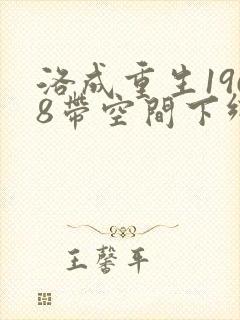 洛成重生196
8帶空間下
王馨平